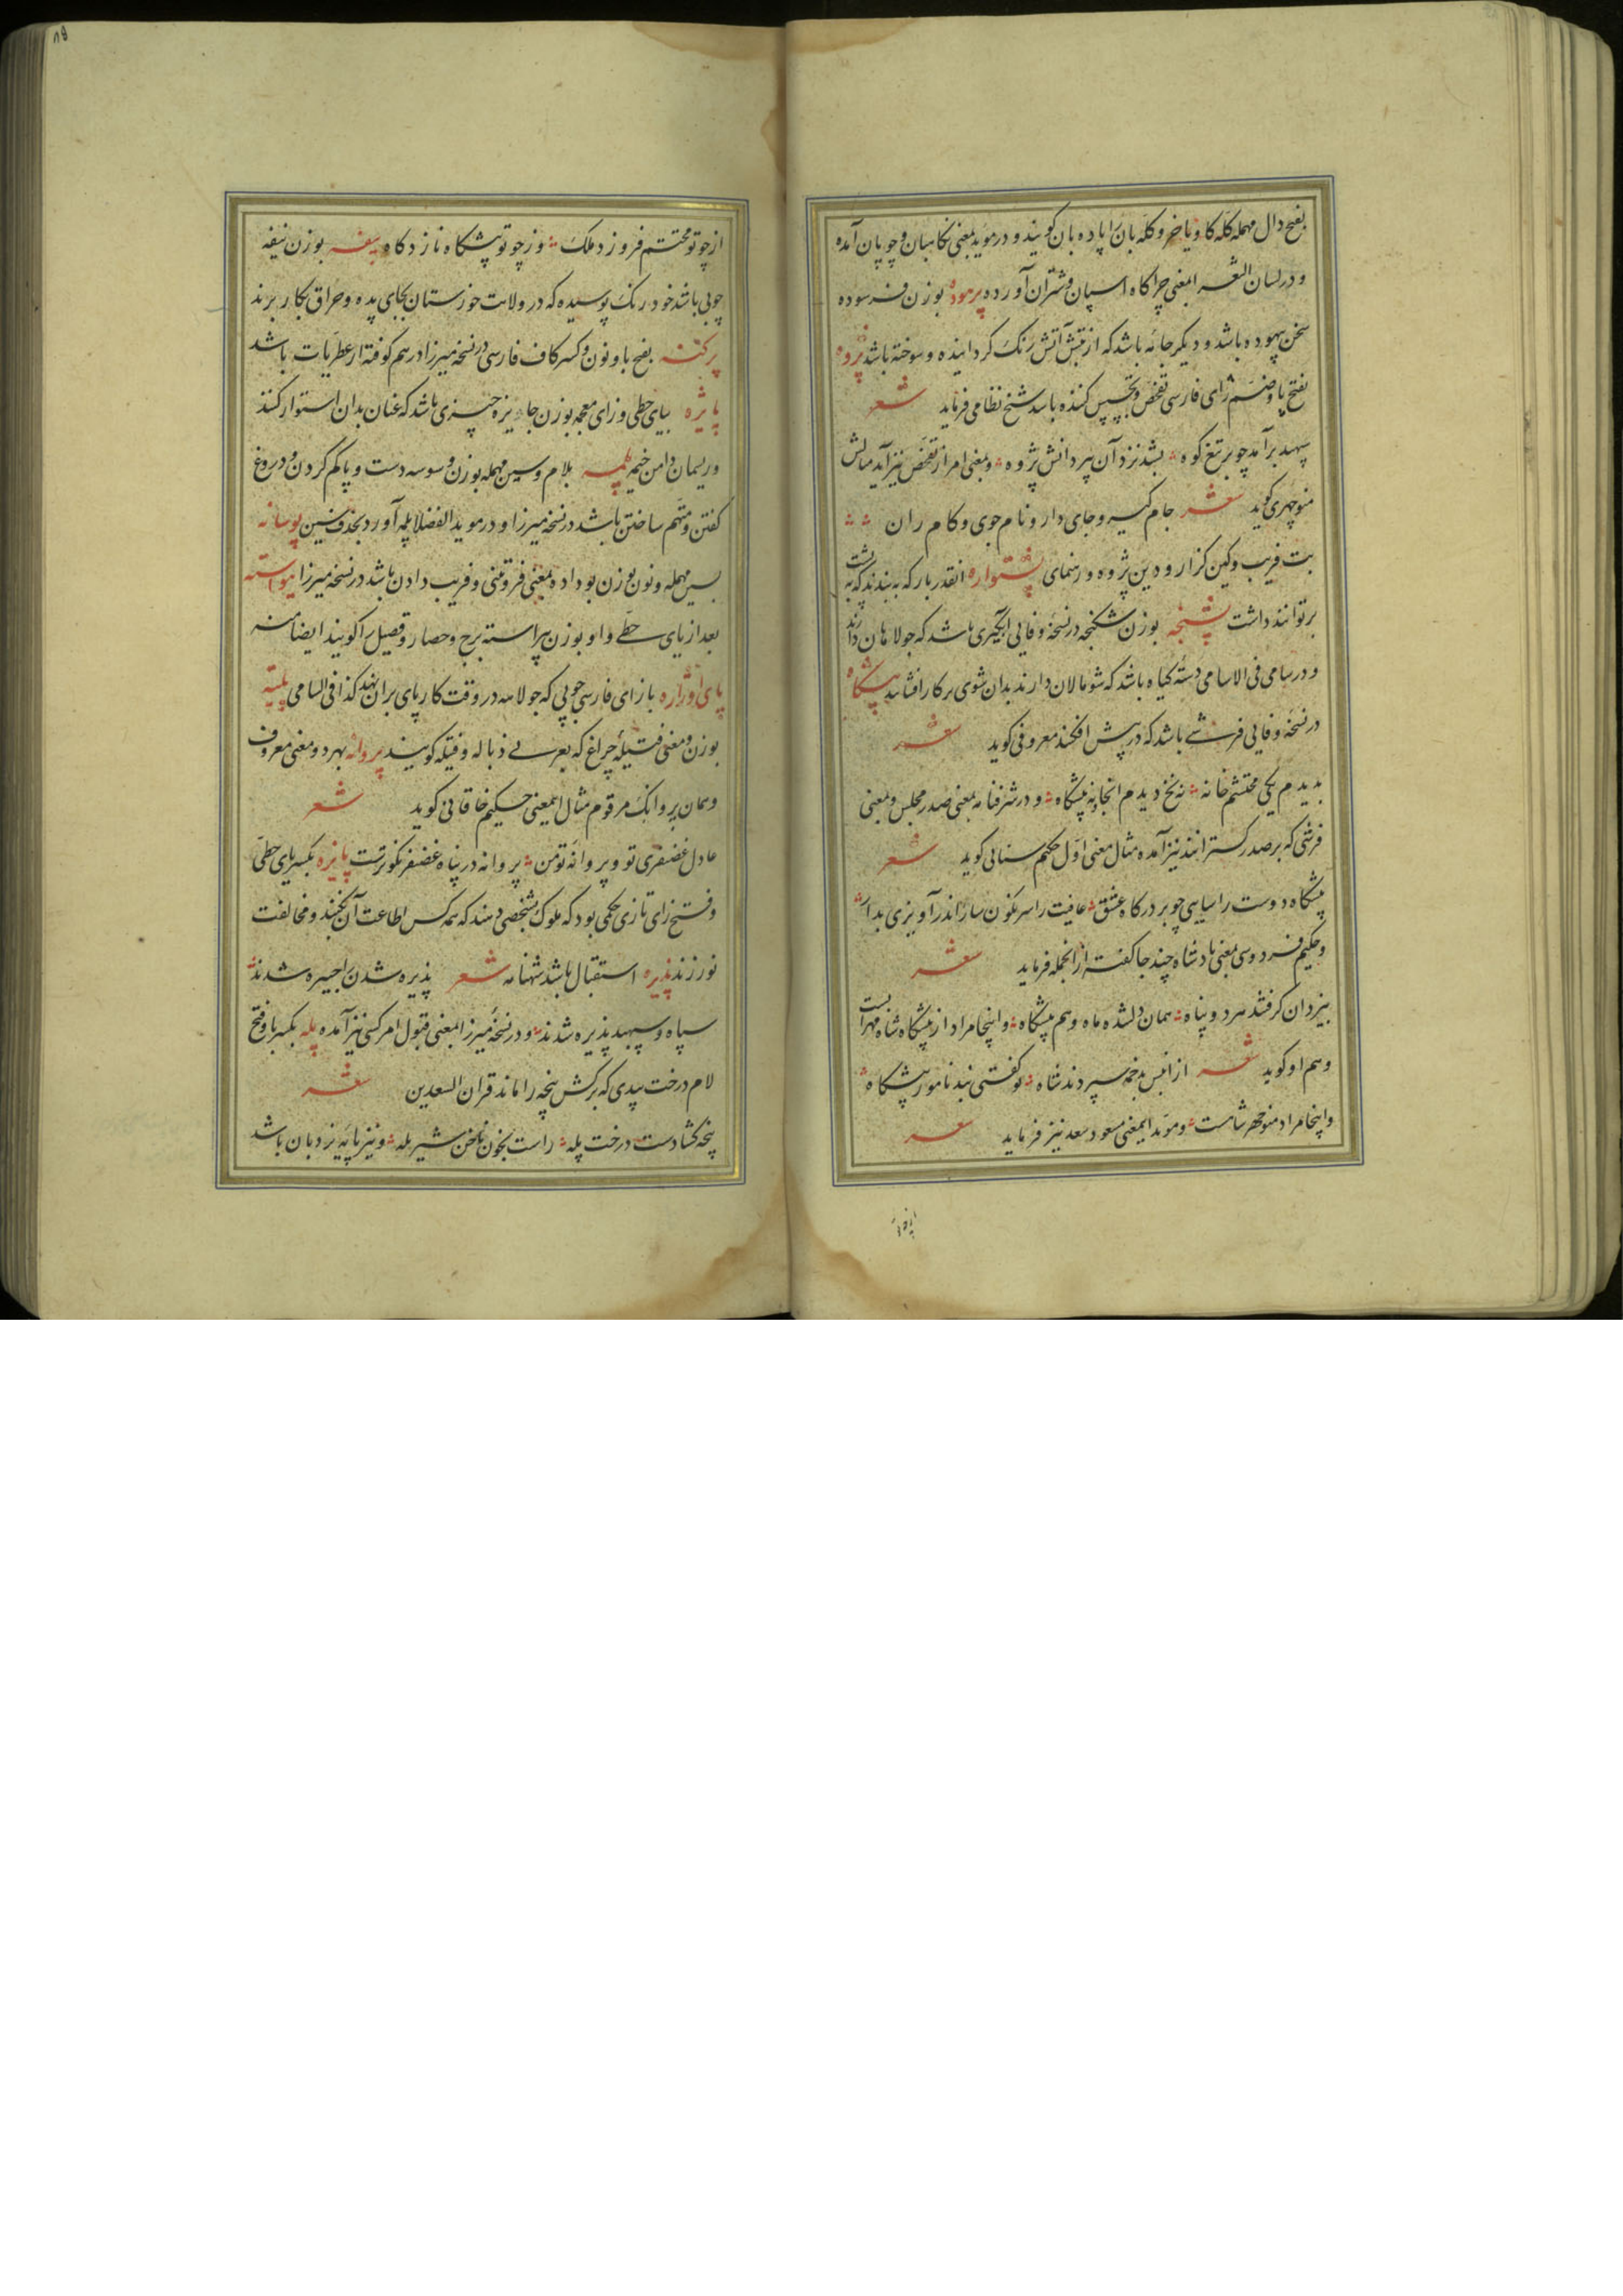 بفتح دال مهمله کله کاو یا خر و کله بان را پاده بان کویند و در موید بمعنی نکاهبان و چوپان آمده
و در لسان الشعرا بمعنی چراکاه اسپان و شتران آورده پرموده بوزن فرسوده
سخن بیهوده باشد و دیکر جامه باشد که از تبش آتش رنک کردانیده و سوخته باشد پژوه
بفتح پا و ضم زای فارسی تفحص و تجسس کننده باشد شیخ نظامی فرماید شعر
سپهبد برآمد چو بر تیغ کوه بشد نزد آن پیر دانش پژوه و بمعنی امر از تفحص نیز آید مثالش
منوچهری کوید شعر جام کیر و جای دار و نام جوی و کام ران
بت فریب و کین کزار و دین پژوه و رهنمای پشتواره انقدر بار که به بندند که به پشت
بر توانند داشت پشنجه بوزن شکنجه در نسخه وفایی ابکیری باشد که جولاهان دارند
و در سامی فی الاسامی دسته کیاه باشد که شومالان دارند بدان شوی بر کار افشانند پیشکاه
در نسخه وفایی فرشی باشد که در پیش افکنند معروفی کوید شعر
بدیدم یکی محتشم خانه نه نخ دیدم انجا و نه پیشکاه و در شرفنامه بمعنی صدر مجلس و بمعنی
فرشی که بر صدر کسترانند نیز آمده مثال معنی اول حکیم سنایی کوید شعر
پیشکاه دوست را شایی چو بر درکاه عشق عافیت را سرنکون سار اندر آویزی بدار
و حکیم فردوسی بمعنی پادشاه چند جا کفته از انجمله فرماید شعر
بیزدان کرفتند هر دو پناه همان دلشده ماه و هم پیشکاه و اینجا مراد از پیشکاه شاه مهرابست
و هم او کوید شعر از انپس بدخمه سپردند شاه تو کفتی نبد نامور پیشکاه
و اینجا مراد منوچهر شاهست و موید ایمعنی مسعود سعد نیز فرماید شعر
از چو تو محتشم فروزد ملک وز چو تو پیشکاه نازد کاه پیفه بوزن نیفه
چوبی باشد خود رنک پوسیده که در ولایت خوزستان بجای پده و حراق بکار برند
پرکنه بفتح با و نون و کسر کاف فارسی در نسخه میرزا درهم کوفته از عطریات باشد
پایژه بیای حطی و زای معجمه بوزن جایزه چیزی باشد که عنان بدان استوار کنند
و ریسمان دامن خیمه پلمسه بلام و سین مهمله بوزن وسوسه دست و پا کم کردن و دروغ
کفتن و متهم ساختن باشد در نسخه میرزا و در موید الفضلا پلمه آورد بحذف سین پوسانه
بسین مهمله و نون بوزن بوداده بمعنی فروتنی و فریب دادن باشد در نسخه میرزا پیواسته
بعد از یای حطی واو بوزن پیراسته برج و حصار و فصیل را کویند ایضا منه
پای اوژاره با زای فارسی چوبی که جولاهه در وقت کار پای بران نهد کذا فی السامی پلیته
بوزن و معنی فتیلۀ چراغ که بعربی ذباله و فتیله کویند پروانه بهر دو معنی معروف
و همان پروانک مرقوم مثال ایمعنی حکیم خاقانی کوید شعر
عادل غضنفری تو و پروانه تو من پروانه در پناه غضنفر نکوترست پایزه بکسر یای حطی
و فتح زای تازی حکمی بود که ملوک بشخصی دهند که همه کس اطاعت آن بکنند و مخالفت
نورزند پذیره استقبال باشد شهنامه شعر پذیره شدن را جبیره شدند
سپاه و سپهبد پذیره شدند و در نسخه میرزا بمعنی قبول امر کسی نیز آمده پله بکسر با و فتح
لام درخت بیدی که برکش پنجه را ماند قران السعدین شعر
پنجه کشادست درخت پله راست بخون ناخن شیر یله و نیز پایه نردبان باشد